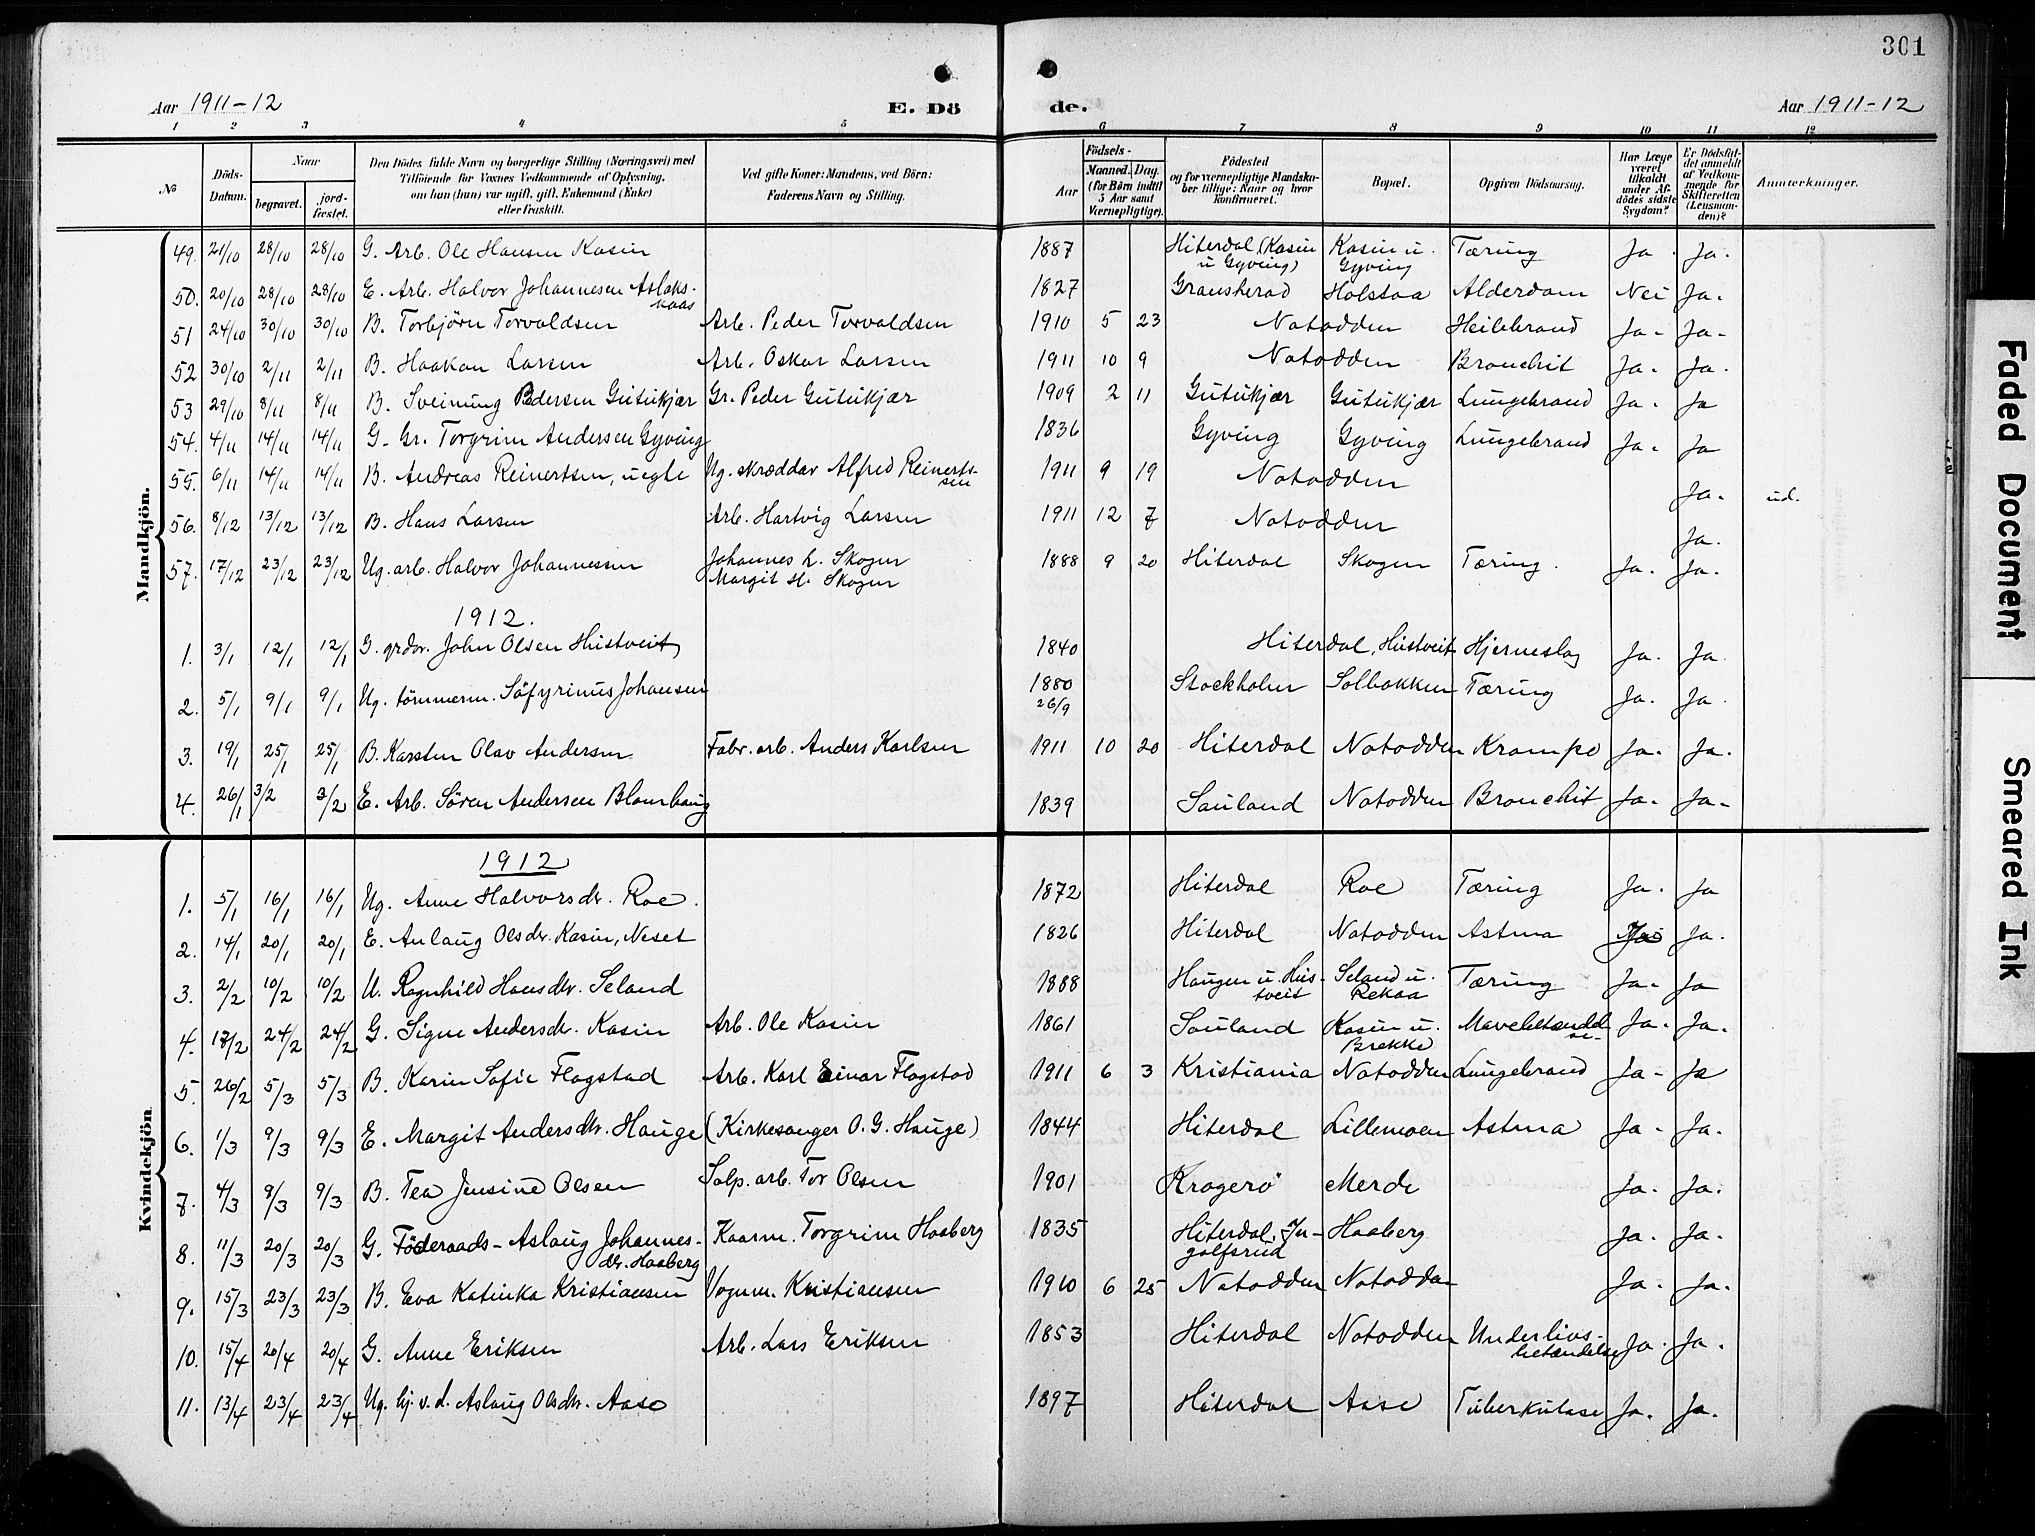 301
Aar 1911-12 E. Dö
de. Aar 1911-12
1 2 3 4 5
6 7 8 9 10 11 12
№
Döds-Datum.
Naar
begravet. jordfæstet.
Den Dödes fulde Navn og borgerlige Stilling (Næringsvei) med
Tilföiende for Voxnes Vedkommende af Oplysning,
om han (hun) var ugift, gift, Enkemand (Enke)
eller fraskilt.
Ved gifte Koner: Mandens, ved Börn:
Faderens Navn og Stilling.
Födsels-
Aar Maaned. Dag.
(for Börn indtil
5 Aar samt
Værnepligtige).
Födested
og for værnepligtige Mandskaber tillige: Naar og hvor
konfirmeret.
Bopæl.
Opgiven Dödsaarsag.
Har Læge
været
tilkaldt
under Afdödes sidste
Sygdom?
Er Dödsfaldet anmeldt
af Vedkommende for
Skifteretten
(Lensmanden)?
Anmærkninger.
Mandkjön.
49. 21/10 28/10 28/10 G. Arb. Ole Hansen Kasin 1887 Hiterdal (Kasin u Gyving) Kasin u. Gyving Tæring Ja. Ja.
50. 20/10 28/10 28/10 E. Arb. Halvor Johannesen Aslaksnaas 1827 Gransherad Holstaa Alderdom Nei Ja.
51 24/10 30/10 30/10 B. Torbjörn Torvaldsen Arb. Peder Torvaldsen 1910 5 23 Notodden Ja. Ja.
52 30/10 2/11 2/11 B. Haakon Larsen Arb. Oskar Larsen 1911 10 9 Notodden Bronchit Ja. Ja.
53 29/10 8/11 8/11 B. Sveinung Pedersen Gutukjær Gr. Peder Gutukjær 1909 2 11 Gutukjær Gutukjær Lungebrand Ja. Ja
54. 4/11 14/11 14/11 G. Gr. Torgrim Andersen Gyving 1836 Gyving Gyving Lungebrand Ja. Ja
55. 6/11 14/11 14/11 B. Andreas Reinertsen, uegte Ug. skræddar Alfred Reinertssen 1911 9 19 Notodden Ja. ud.
56. 8/12 13/12 13/12 B. Hans Larsen Arb. Hartvig Larsen 1911 12 7 Notodden Ja.
57. 17/12 23/12 23/12 Ug. arb. Halvor Johannessen Johannes L. Skogen Margit H. Skogen 1888 9 20 Hiterdal Skogen Tæring. Ja. Ja.
1912.
1. 3/1 12/1 12/1 G. grdbr. John Olsen Hustveit 1840 Hiterdal, Hustveit Hjerneslag Ja. Ja.
2. 5/1 9/1 9/1 Ug. tömmerm. Söfyrinus Johansen 1880 26/9 Stockholm Solbakken Tæring Ja. Ja.
3. 19/1 25/1 25/1 B. Karsten Olav Andersen Fabr. arb. Anders Karlsen 1911 10 20 Hiterdal Notodden Krampe Ja. Ja.
4. 26/1 3/2 3/2 E. Arb. Sören Andersen Blomhaug 1839 Sauland Notodden Bronchit Ja. Ja.
Kvindekjön.
1912
1. 5/1 16/1 16/1 Ug. Anne Halvorsdr. Roe. 1872 Hiterdal Roe Tæring Ja. Ja
2. 14/1 20/1 20/1 E. Anlaug Olsdr. Kasin, Neset 1826 Hiterdal Notodden Astma Ja.
3. 2/2 10/2 10/2 U. Ragnhild Hansdtr. Seland 1888 Haugen u. Hustveit Seland u. Rekaa Tæring Ja. Ja
4. 18/2 24/2 24/2 G. Signe Andersdr. Kasin Arb. Ole Kasin 1861 Sauland Kasin u. Brekke Mavebetændelse. Ja. Ja.
5. 26/2 5/3 5/3 B. Karin Sofie Flagstad Arb. Karl Einar Flagstad 1911 6 3 Kristiania Notodden Lungebrand Ja. Ja
6. 1/3 9/3 9/3 E. Margit Andersdtr. Hauge (Kirkesanger O. G. Hauge) 1844 Hiterdal Lillemoen Astma Ja. Ja.
7. 4/3 9/3 9/3 B. Tea Jensine Olsen Salp. arb. Tor Olsen 1901 Kragerö Merde Ja. Ja.
8. 11/3 20/3 20/3 G. Föderaads- Aslaug Johannesdr. Haaberg Kaarm. Torgrim Haaberg 1835 Hiterdal, Ingolfsrud Haaberg Ja. Ja.
9. 15/3 23/3 23/3 B. Eva Katinka Kristiansen Vognm. Kristiansen 1910 6 25 Notodden Notodden Ja. Ja.
10. 15/4 20/4 20/4 G. Anne Eriksen Arb. Lars Eriksen 1853 Hiterdal Notodden Underlivsbetændelse Ja. Ja.
11. 13/4 23/4 23/4 Ug. hj. v. d. Aslaug Olsdtr. Aase 1897 Hiterdal Aase Tuberkulose Ja. Ja.
Faded Document
Smeared Ink